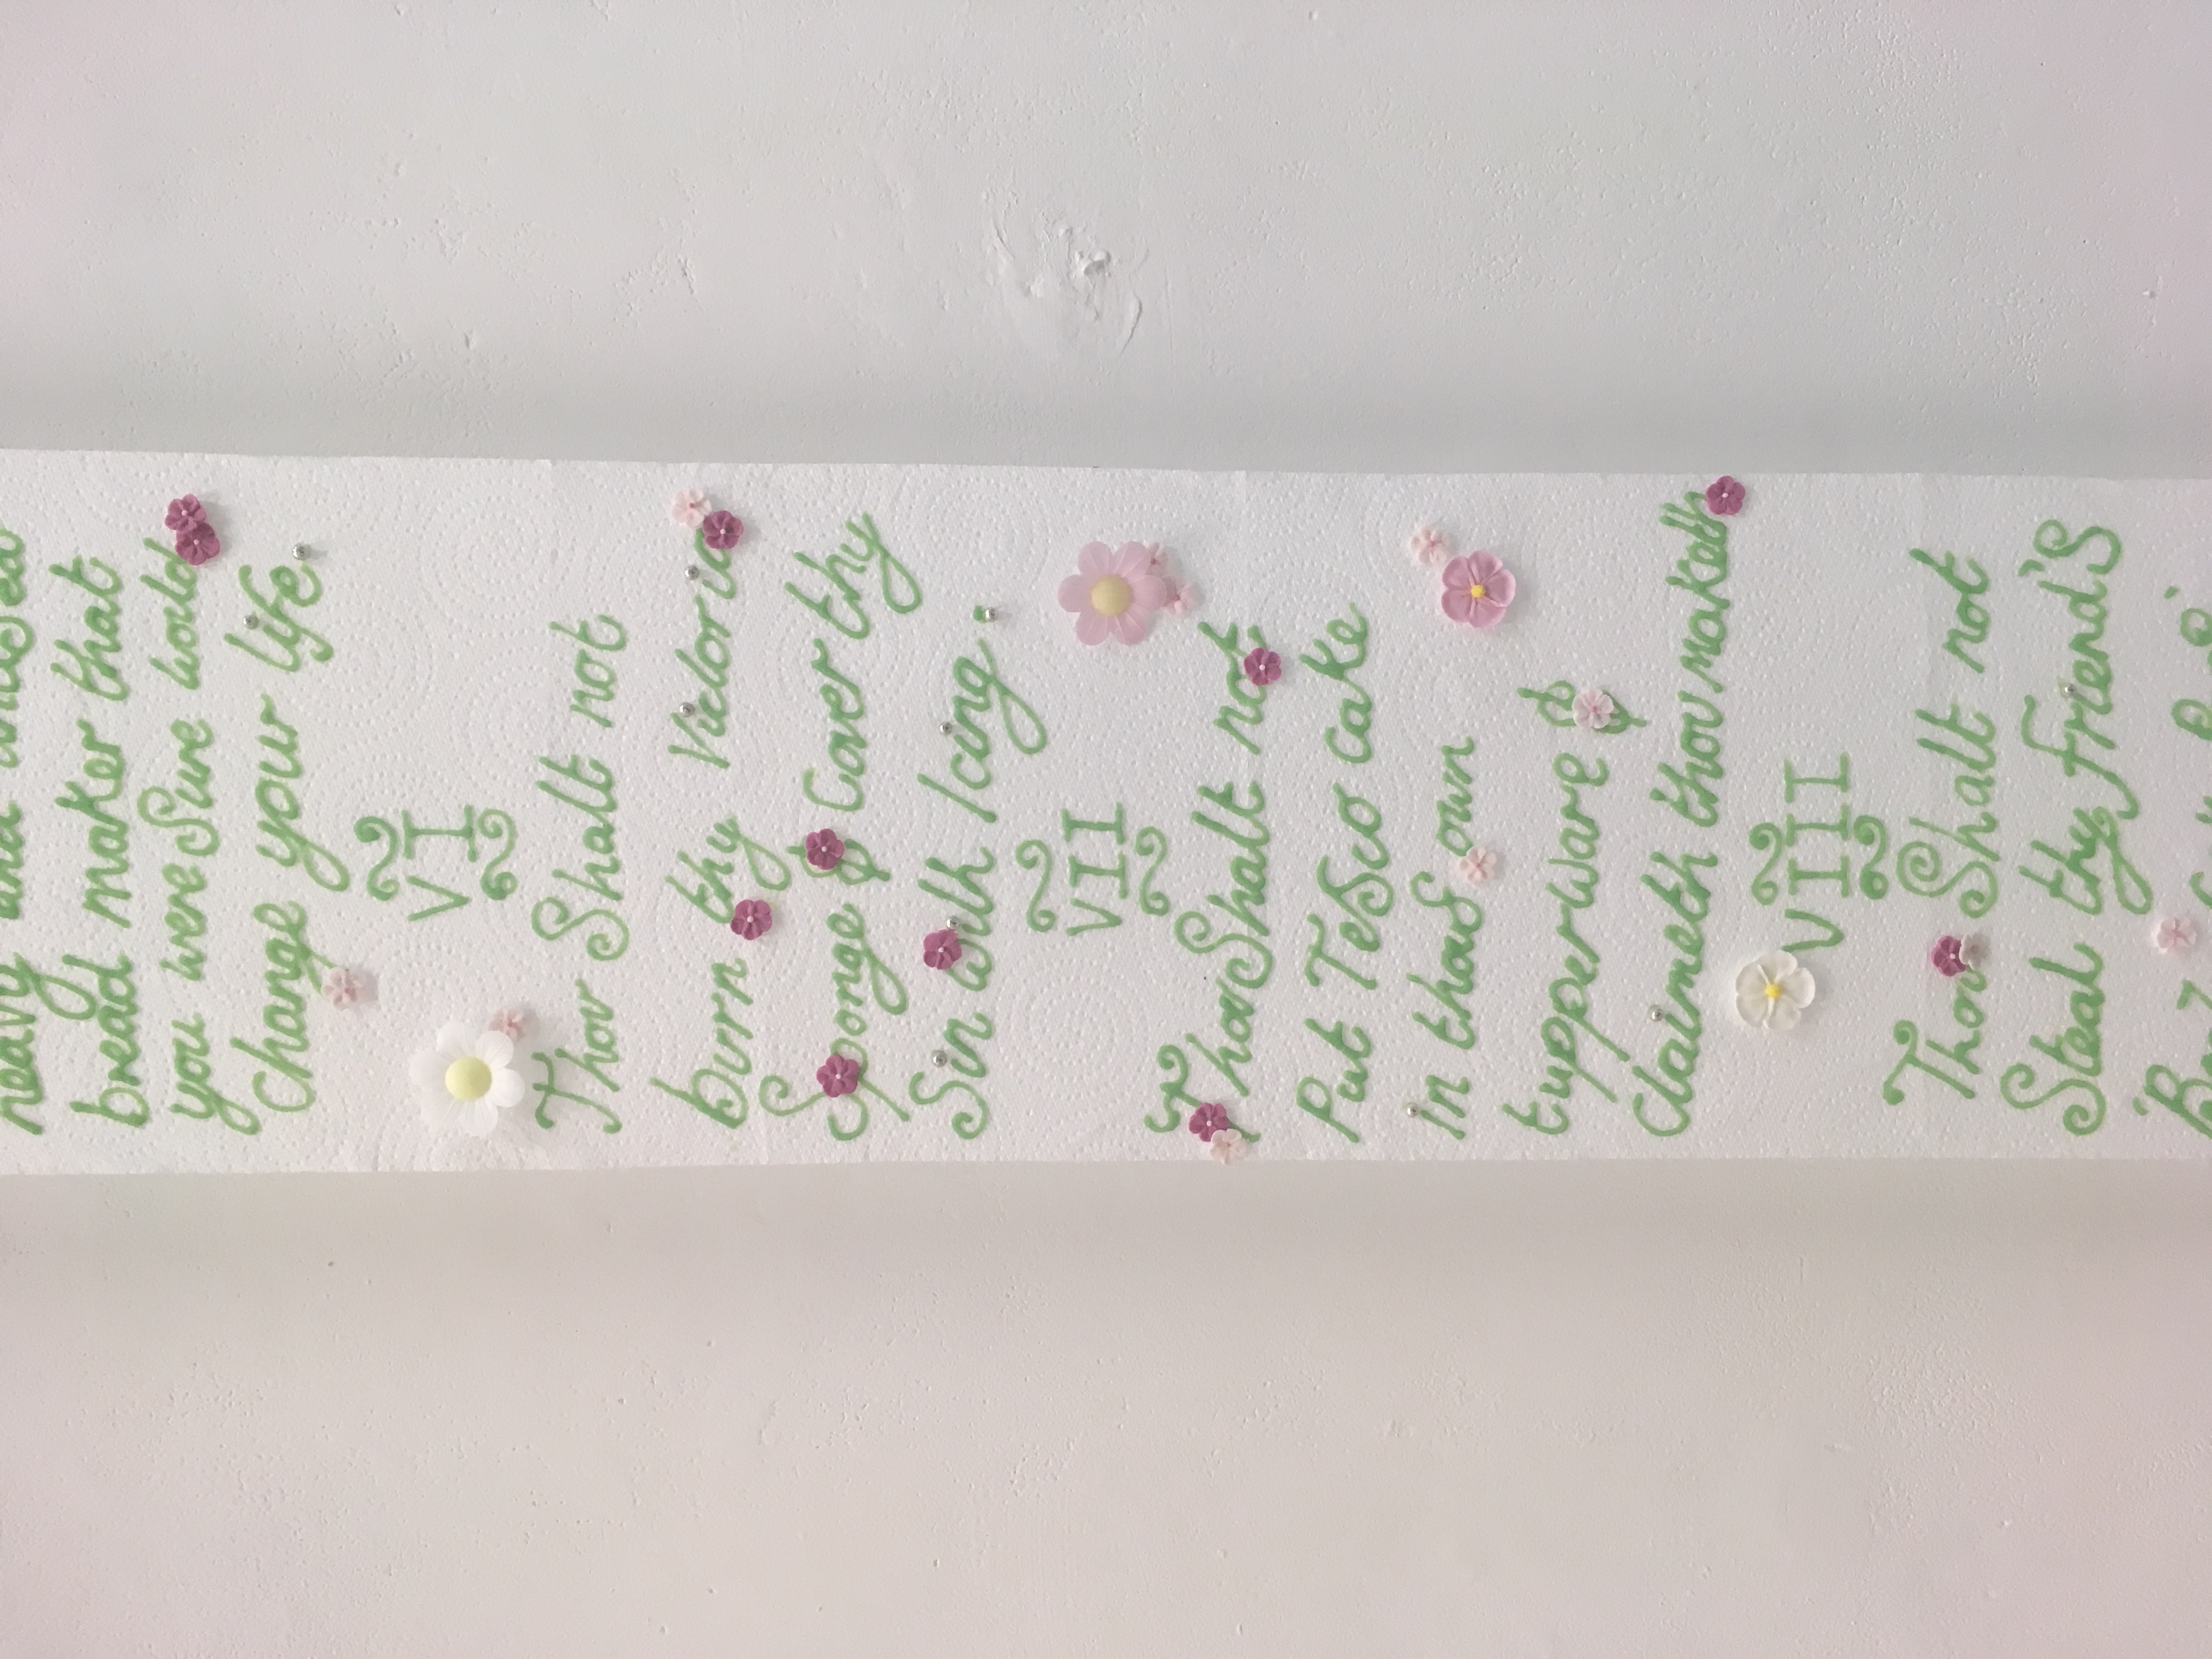 heavy and unused
bread maker that
you were Sure would
change your life.
VI
Thou Shalt not
burn thy Victoria
Sponge & Cover thy
Sin with Icing.
VII
Thou Shalt not
Put TeSco cake
in thouS own
tupperware &
Claimeth thou maketh
VIII
Thou Shalt not
Steal thy friend'S